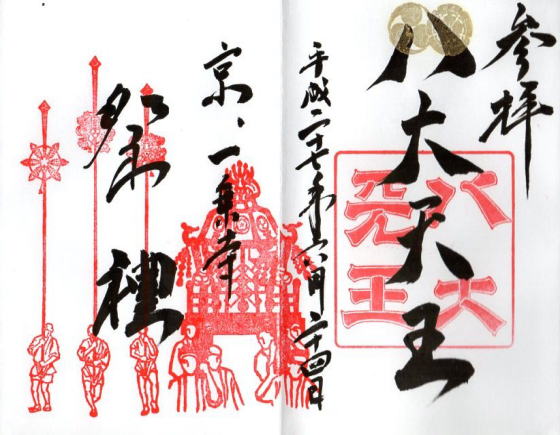 参拝
八大天王
八大
天王
平成二十七年六月二十四日
京、一乗寺
祭禮